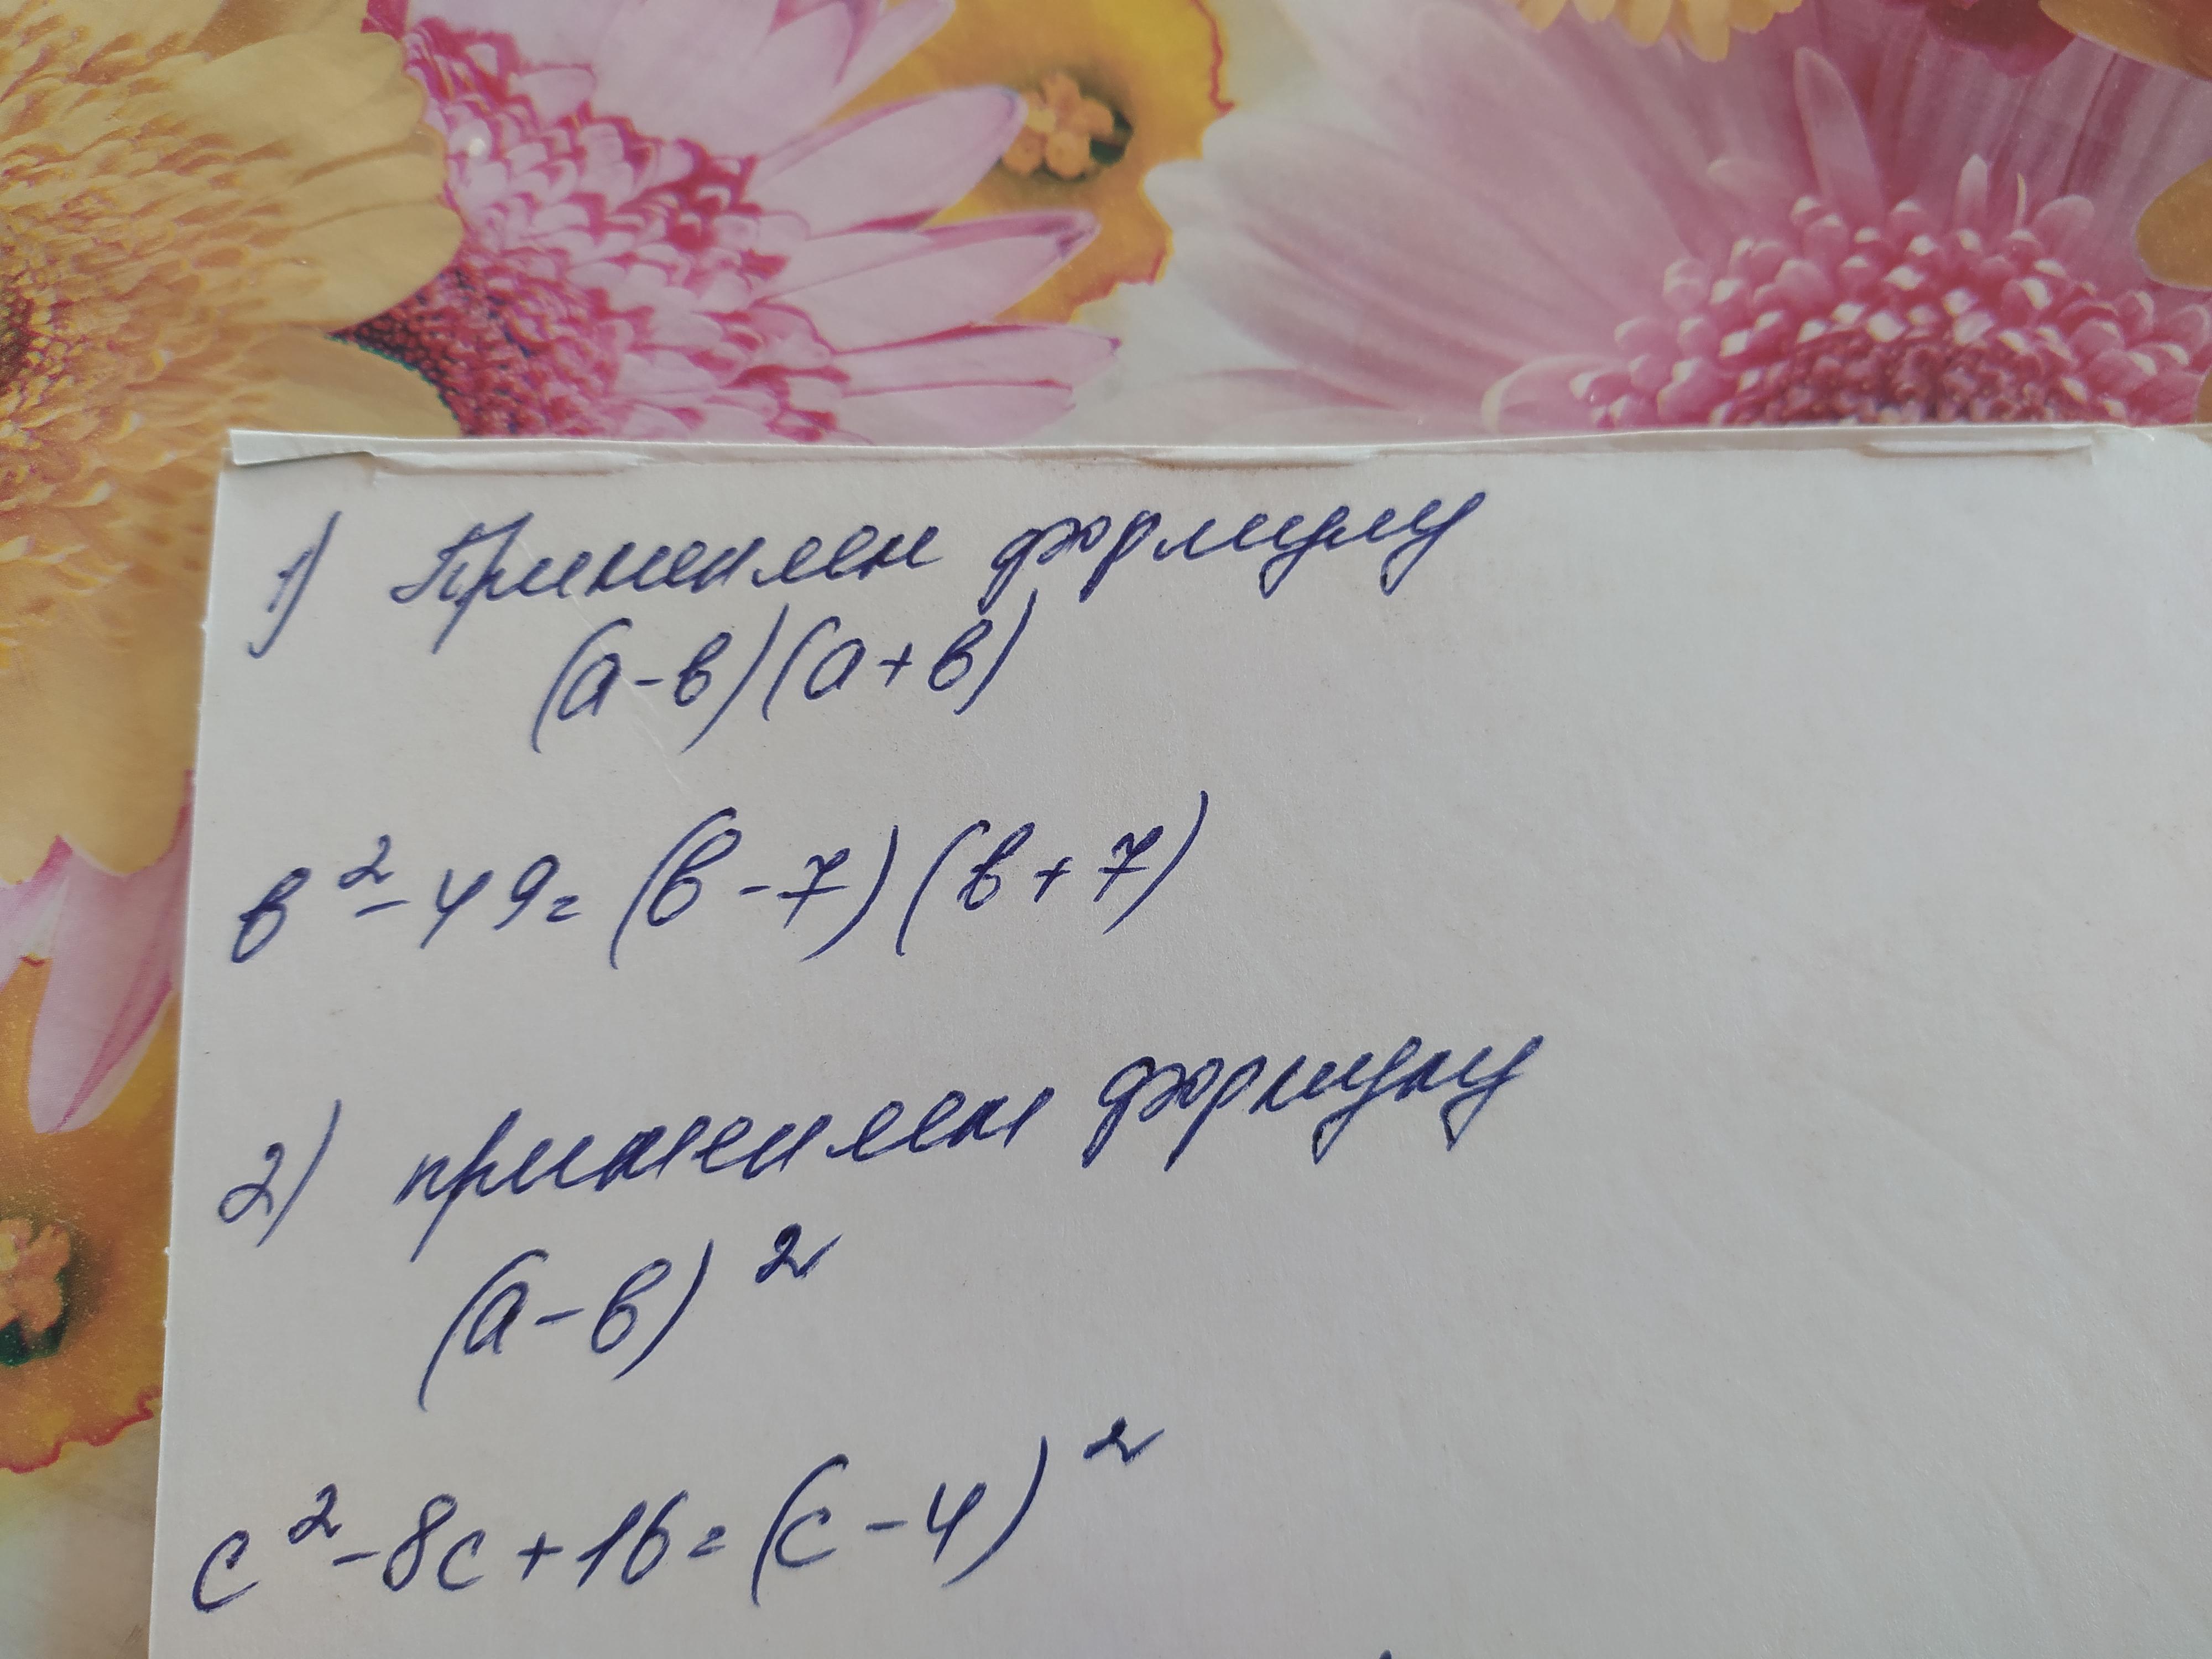 1) Применяем формулу
(а-в)(а+в)
в²-49=(в-7)(в+7)
2) применяем формулу
(а-в)²
с²-8с+16=(с-4)²